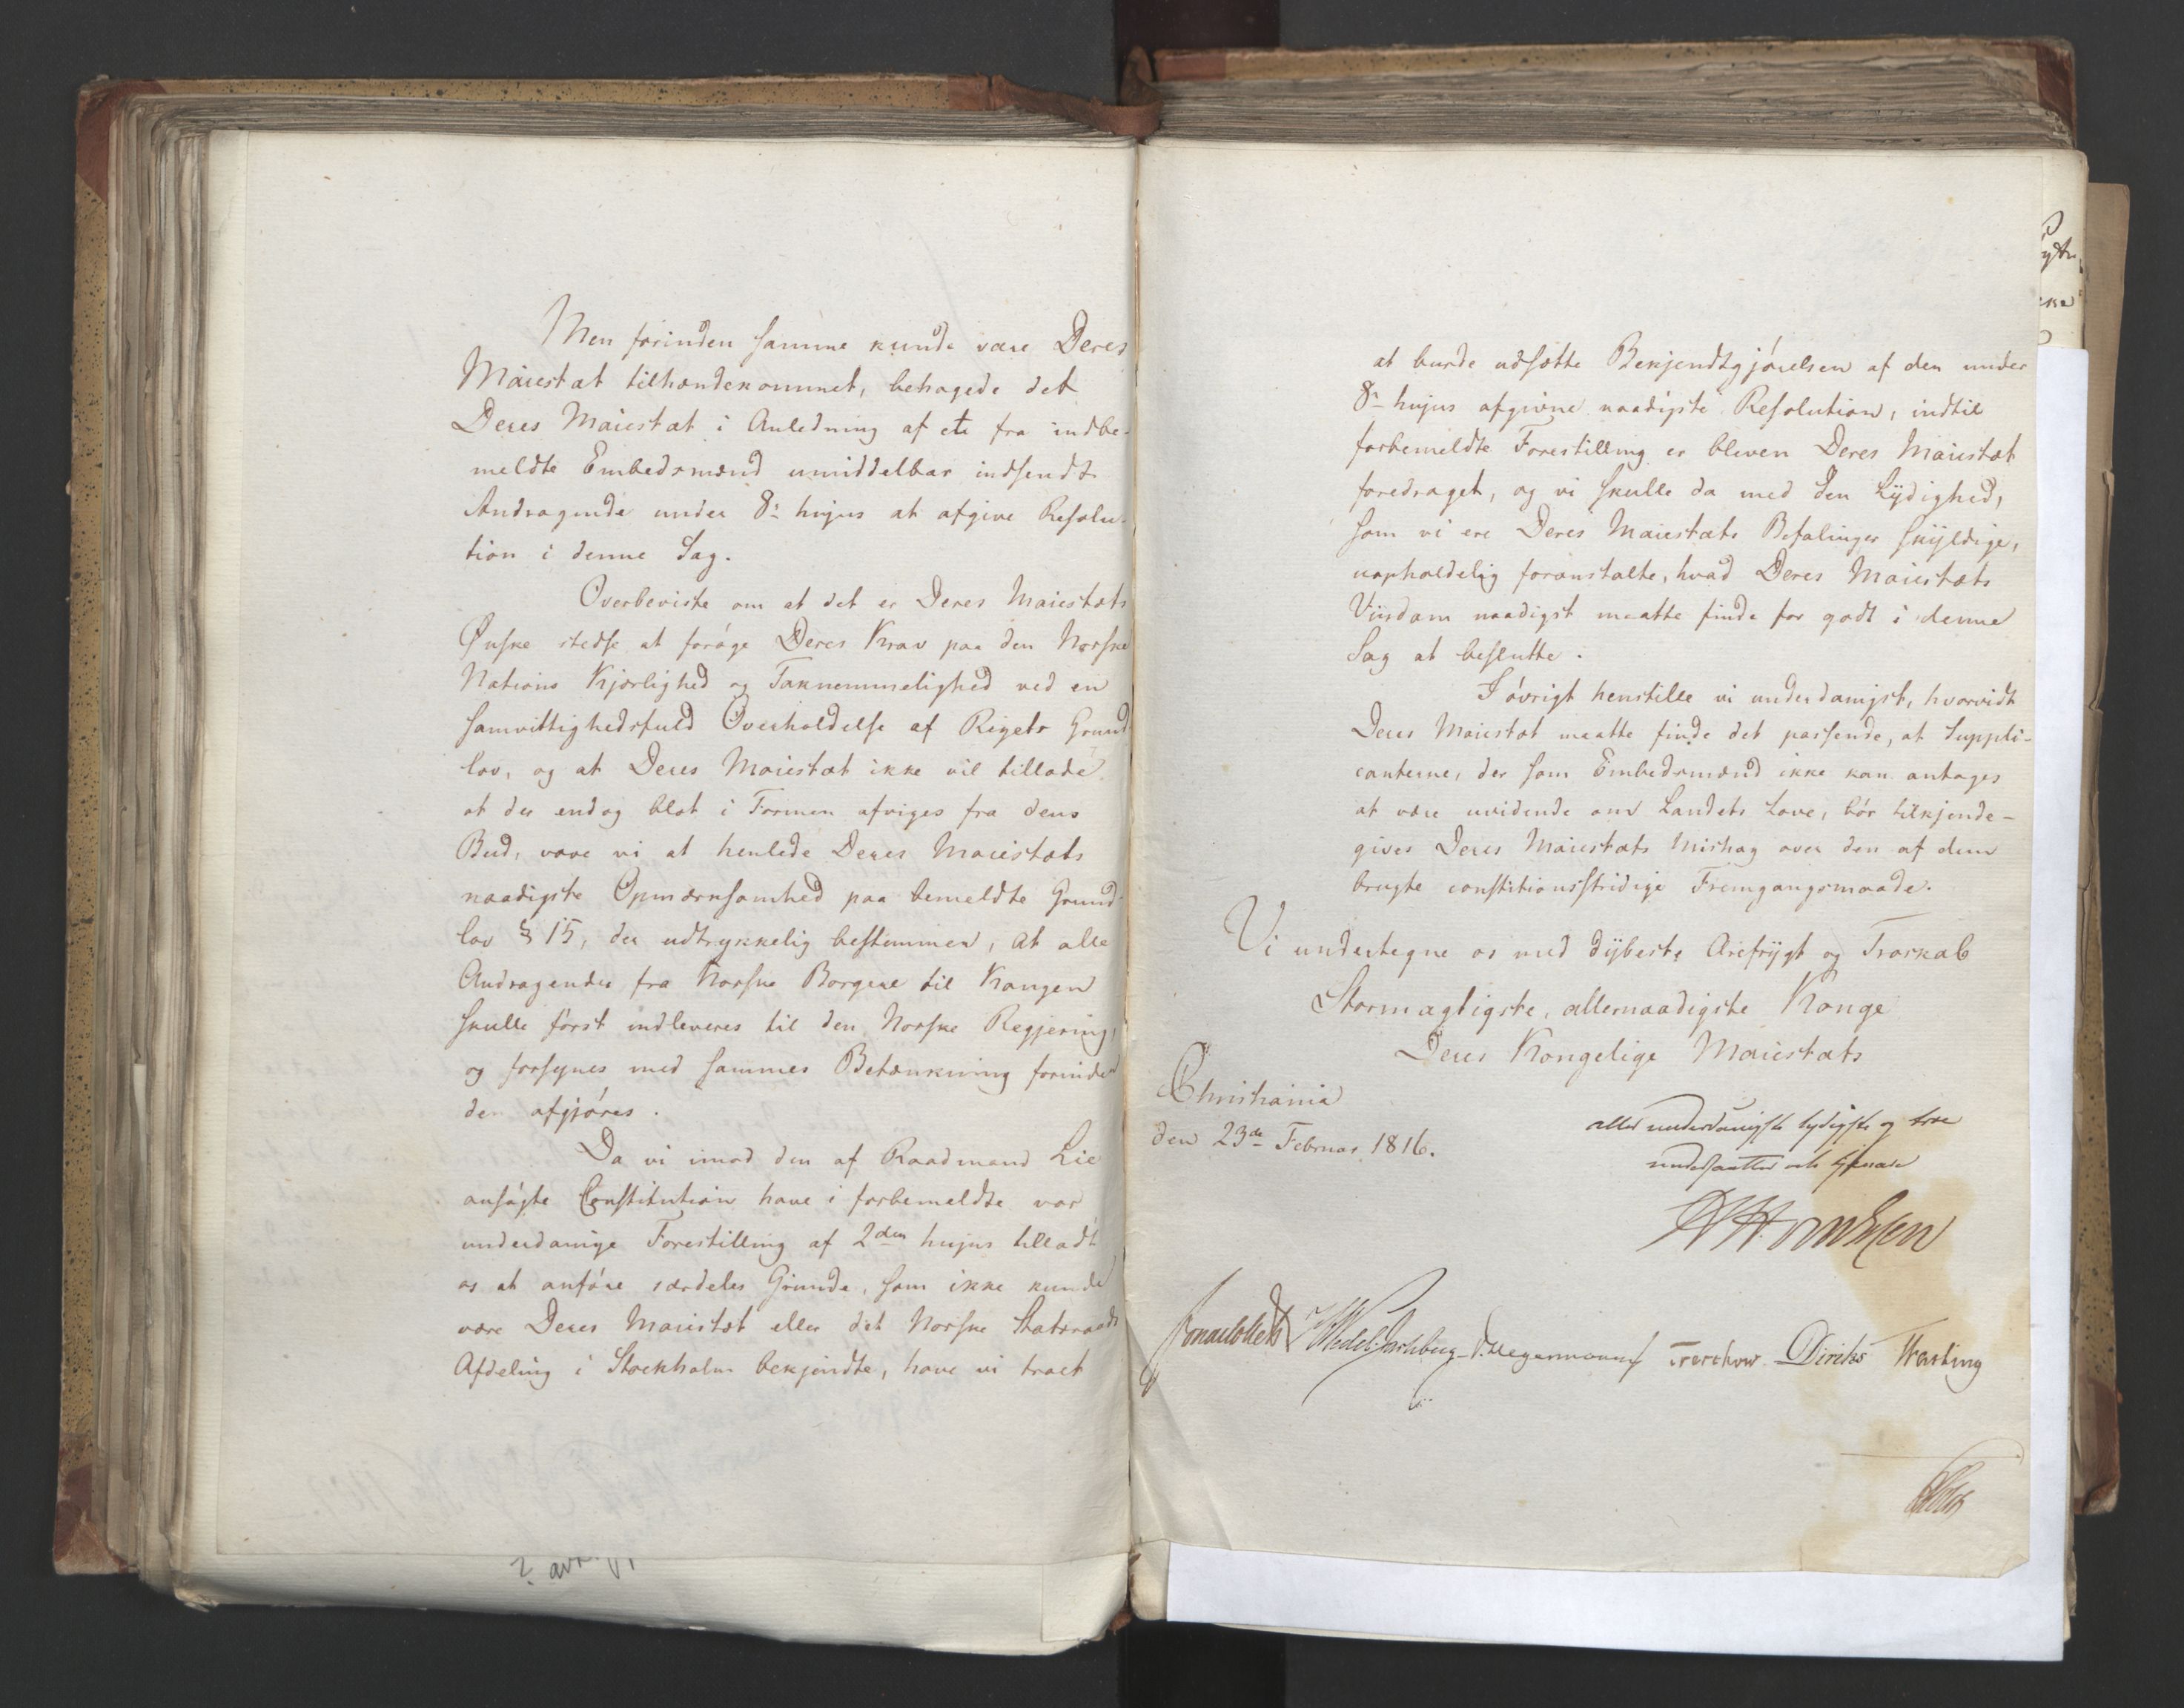 Men forinden samme kunde være Deres
Maiestæt tilhændekommet, behagede det
Deres Maiestæt i Anledning af et fra indbe-
meldte Embedsmænd umiddelbar indsendt
Andragende under 8de hujus at afgive Resolu-
tion i denne Sag.
Overbeviste om at det er Deres Maiestæts
Ønske stedse at forøge Deres Krav paa den Norske
Nations Kjærlighed og Taknemmelighed ved en
samvittighedsfuld Overholdelse af Rigets Grund
lov, og at Deres Maiestæt ikke vil tillade
at der endog blot i Formen afviges fra dens
Bud, vove vi at henlede Deres Maiestæts
naadigste Opmærksomhed paa bemeldte Grund-
lov § 15, der udtrykkelig bestemmer, at alle
Andragender fra Norske Borgere til Kongen
skulle først indleveres til den Norske Regjering,
og forsynes med sammes Betænkning forinden
den afgjøres.
Da vi imod den af Raadmand Lie
ansøgte Constitution have i forbemeldte vor
underdanige Forestilling af 2den hujus tilladt
os at anføre særdeles Grunde, som ikke kunde
være Deres Maiestæt eller det Norske Statsraads
Afdeling i Stockholm bekjendte, have vi troet
at burde udsætte Bekjendtgjørelsen af den under
8de hujus afgivne naadigste Resolution, indtil
forbemeldte Forestilling er bleven Deres Maiestæt
foredraget, og vi skulle da med den Lydighed,
som vi ere Deres Maiestæts Befalinger skyldige,
uopholdelig foranstalte, hvad Deres Maiestæts
Viisdom naadigst maatte finde for godt i denne
Sag at beslutte.
I øvrigt henstille vi underdanigst, hvorvidt
Deres Maiestæt maatte finde det passende, at Suppli-
canterne, der som Embedsmænd ikke kan antages
at være uvidende om Landets Love, bør tilkjende-
gives Deres Maiestæts Mishag over den af dem
brugte constitionsstridige Fremgangsmaade.
Vi undertegne os med dybeste Ærefrygt og Troskab
Stormægtigste, allernaadigste Konge
Deres Kongelige Maiestæts
Christiania
den 23de Februar 1816.
aller underdanigste lydigste og troe
undersaatter och tjenare
Wedel Jarlsberg D. Hegermann Treschow Diriks Motzfeldt